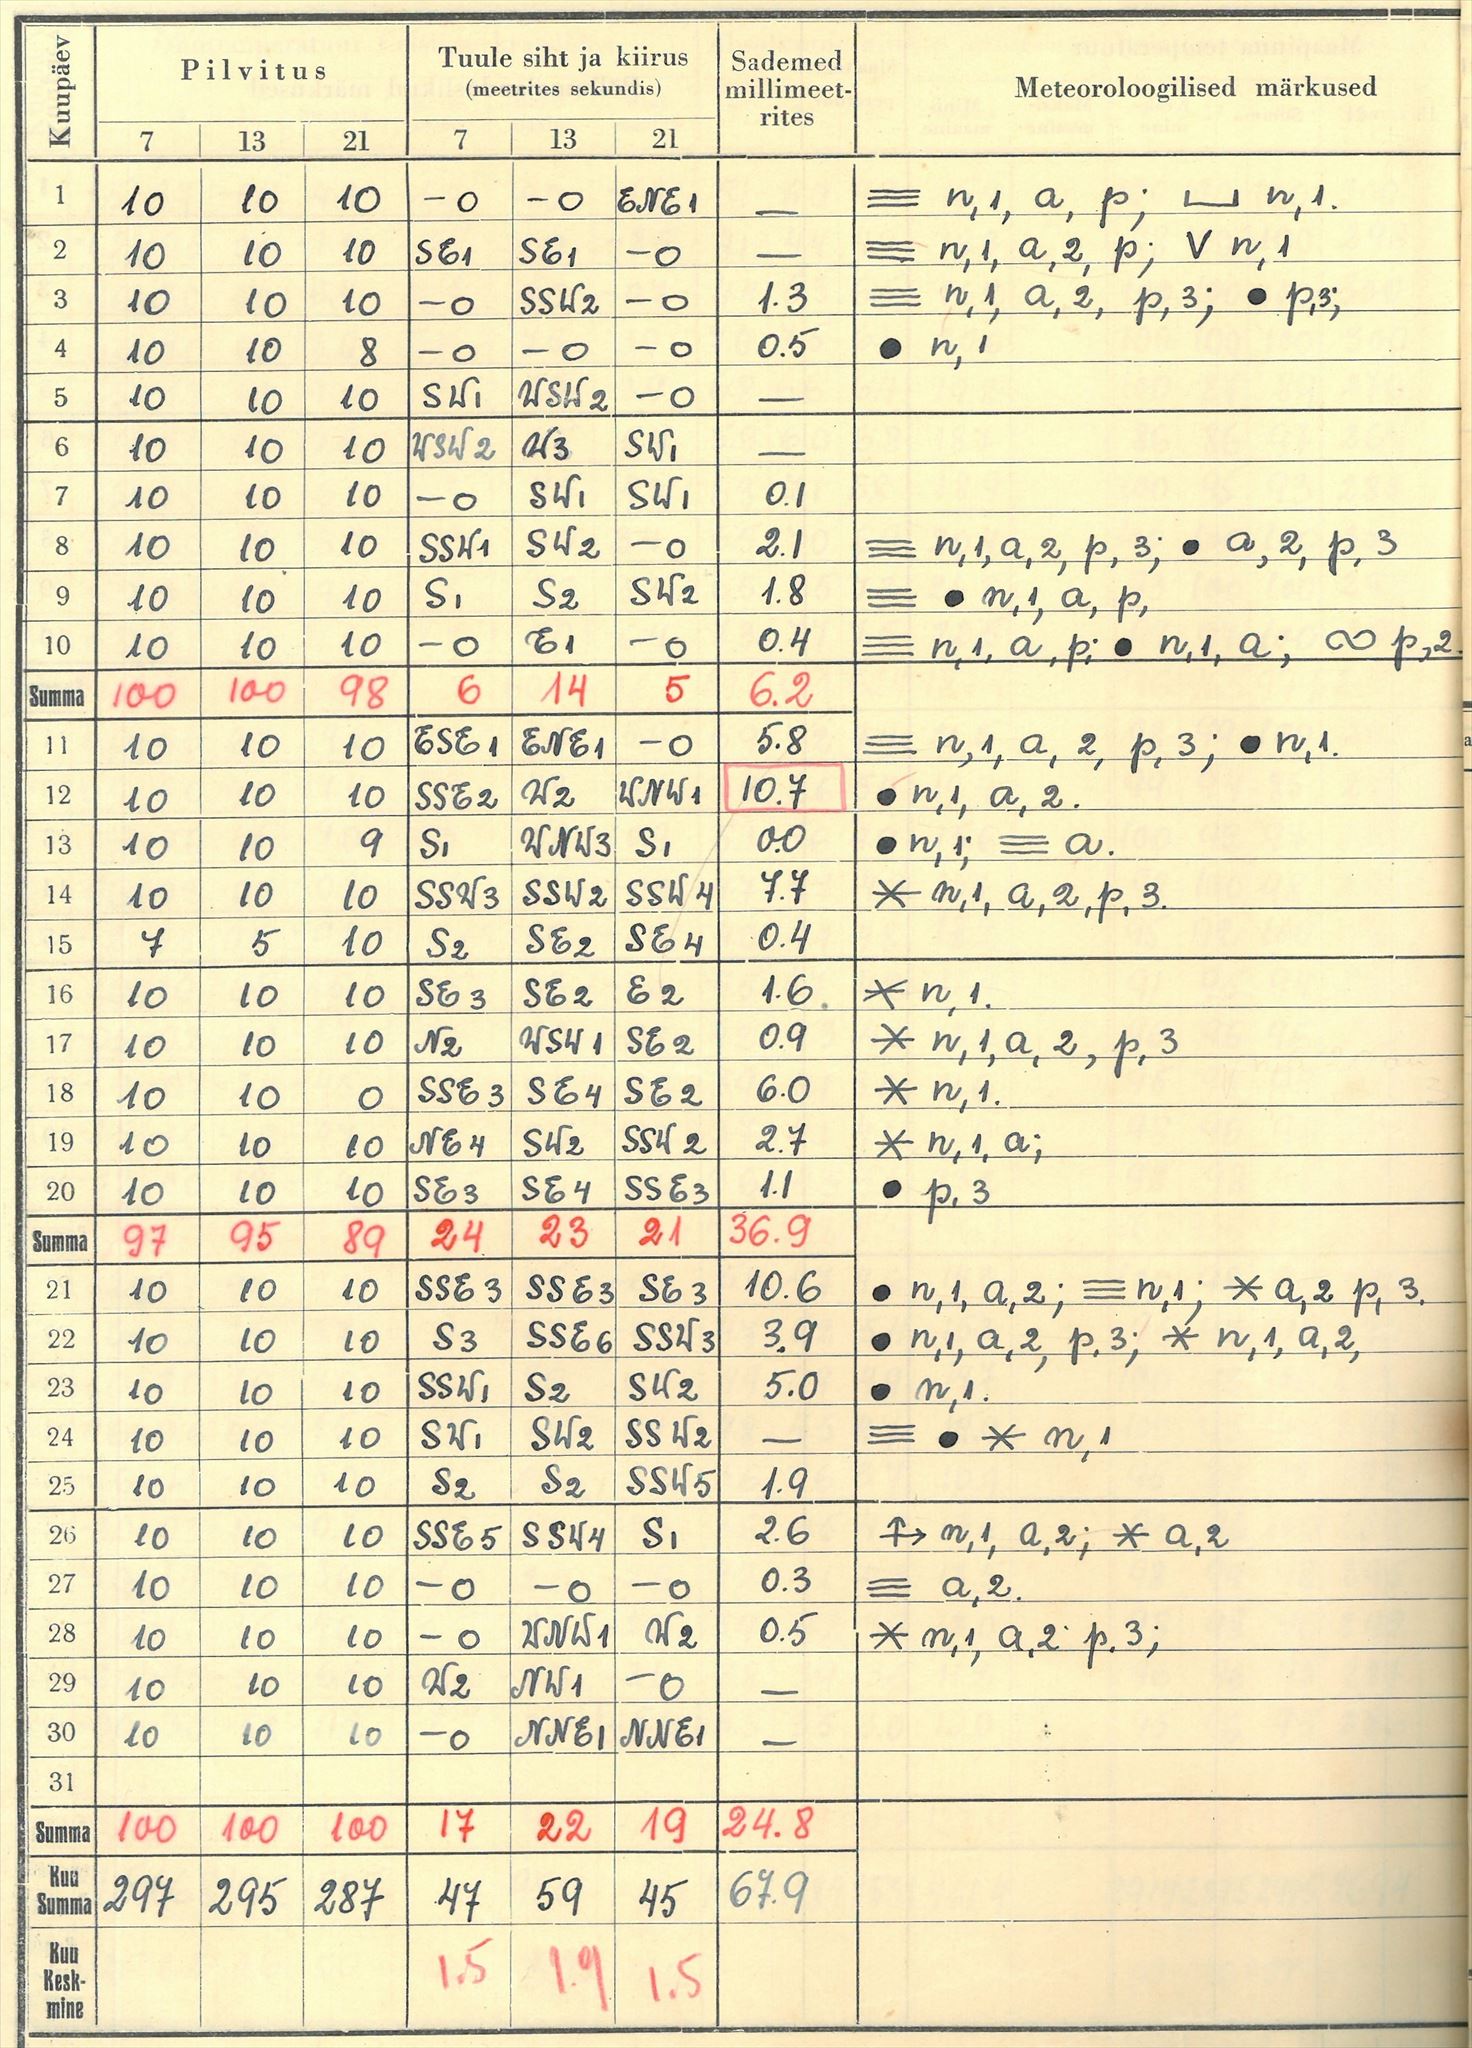 Kuupäev Pilvitus Tuule siht ja kiirus Sademed Meteoroloogilised märkused
(meetrites sekundis) millimeet-
rites
7 13 21 7 13 21
1 10 10 10 –0 –0 ENE1 — ≡ n,1, a, p; ⌴ n,1.
2 10 10 10 SE1 SE1 –0 — ≡ n,1, a,2, p; V n,1
3 10 10 10 –0 SSW2 –0 1.3 ≡ n,1, a,2, p,3; ● p,3;
4 10 10 8 –0 –0 –0 0.5 ● n,1
5 10 10 10 SW1 WSW2 –0 —
6 10 10 10 WSW2 W3 SW1 —
7 10 10 10 –0 SW1 SW1 0.1
8 10 10 10 SSW1 SW2 –0 2.1 ≡ n,1,a,2, p,3; ● a,2, p,3
9 10 10 10 S1 S2 SW2 1.8 ≡ ● n,1, a, p,
10 10 10 10 –0 E1 –0 0.4 ≡ n,1, a, p; ● n,1, a; ∞ p,2.
Summa 100 100 98 6 14 5 6.2
11 10 10 10 ESE1 ENE1 –0 5.8 ≡ n,1, a, 2, p,3; ● n,1.
12 10 10 10 SSE2 W2 WNW1 10.7 ● n,1, a,2.
13 10 10 9 S1 WNW3 S1 0.0 ● n,1; ≡ a.
14 10 10 10 SSW3 SSW2 SSW4 7.7 ✳ n,1, a,2,p,3.
15 7 5 10 S2 SE2 SE4 0.4
16 10 10 10 SE3 SE2 E2 1.6. ✳ n,1.
17 10 10 10 N2 WSW1 SE2 0.9 ✳ n,1,a,2, p,3
18 10 10 0 SSE3 SE4 SE2 6.0 ✳ n,1.
19 10 10 10 NE4 SW2 SSW2 2.7 ✳ n,1, a;
20 10 10 10 SE3 SE4 SSE3 1.1 ● p,3
Summa 97 95 89 24 23 21 36.9
21 10 10 10 SSE3 SSE3 SE3 10.6 ● n,1, a,2; ≡ n,1; ✳ a,2 p, 3.
22 10 10 10 S3 SSE6 SSW3 3.9 ● n,1, a,2, p,3; ✳ n,1, a,2,
23 10 10 10 SSW1 S2 SW2 5.0 ● n,1.
24 10 10 10 SW1 SW2 SSW2 — ≡ ● ✳ n,1
25 10 10 10 S2 S2 SSW5 1.9
26 10 10 10 SSE5 SSW4 S1 2.6 ↑→ n,1, a,2; ✳ a,2
27 10 10 10 –0 –0 –0 0.3 ≡ a,2.
28 10 10 10 –0 WNW1 W2 0.5 ✳ n,1, a,2 p,3;
29 10 10 10 W2 NW1 –0 —
30 10 10 10 –0 NNE1 NNE1 —
31
Summa 100 100 100 17 22 19 24.8
Kuu
Summa 297 295 287 47 59 45 67.9
Kuu
Kesk-
mine 1.5 1.9 1.5